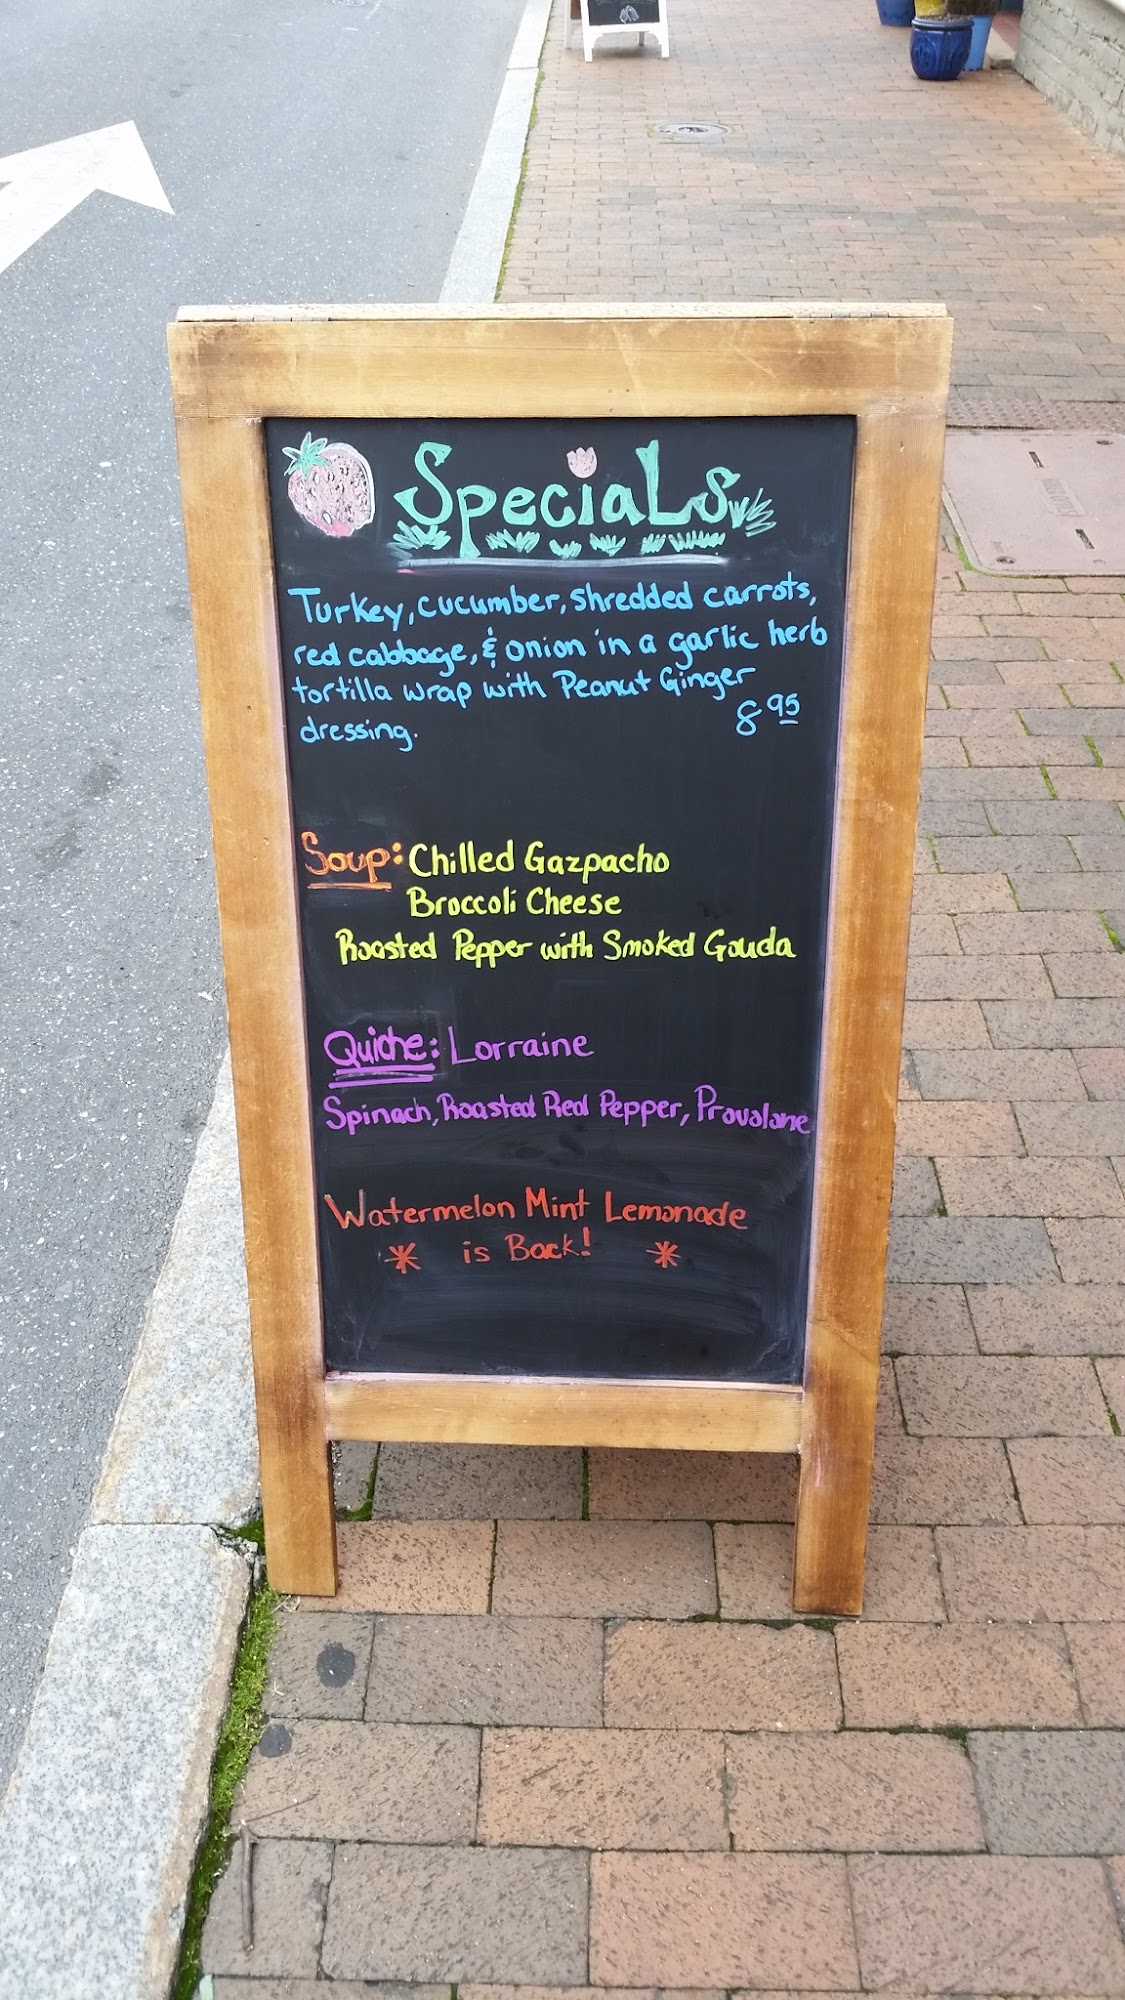 Specials
Turkey, cucumber, shredded carrots,
red cabbage, & onion in a garlic herb
tortilla wrap with Peanut Ginger
dressing. 8 95
Soup: Chilled Gazpacho
Broccoli Cheese
Roasted Pepper with Smoked Gouda
Quiche: Lorraine
Spinach, Roasted Red Pepper, Provolone
Watermelon Mint Lemonade
* is Back! *